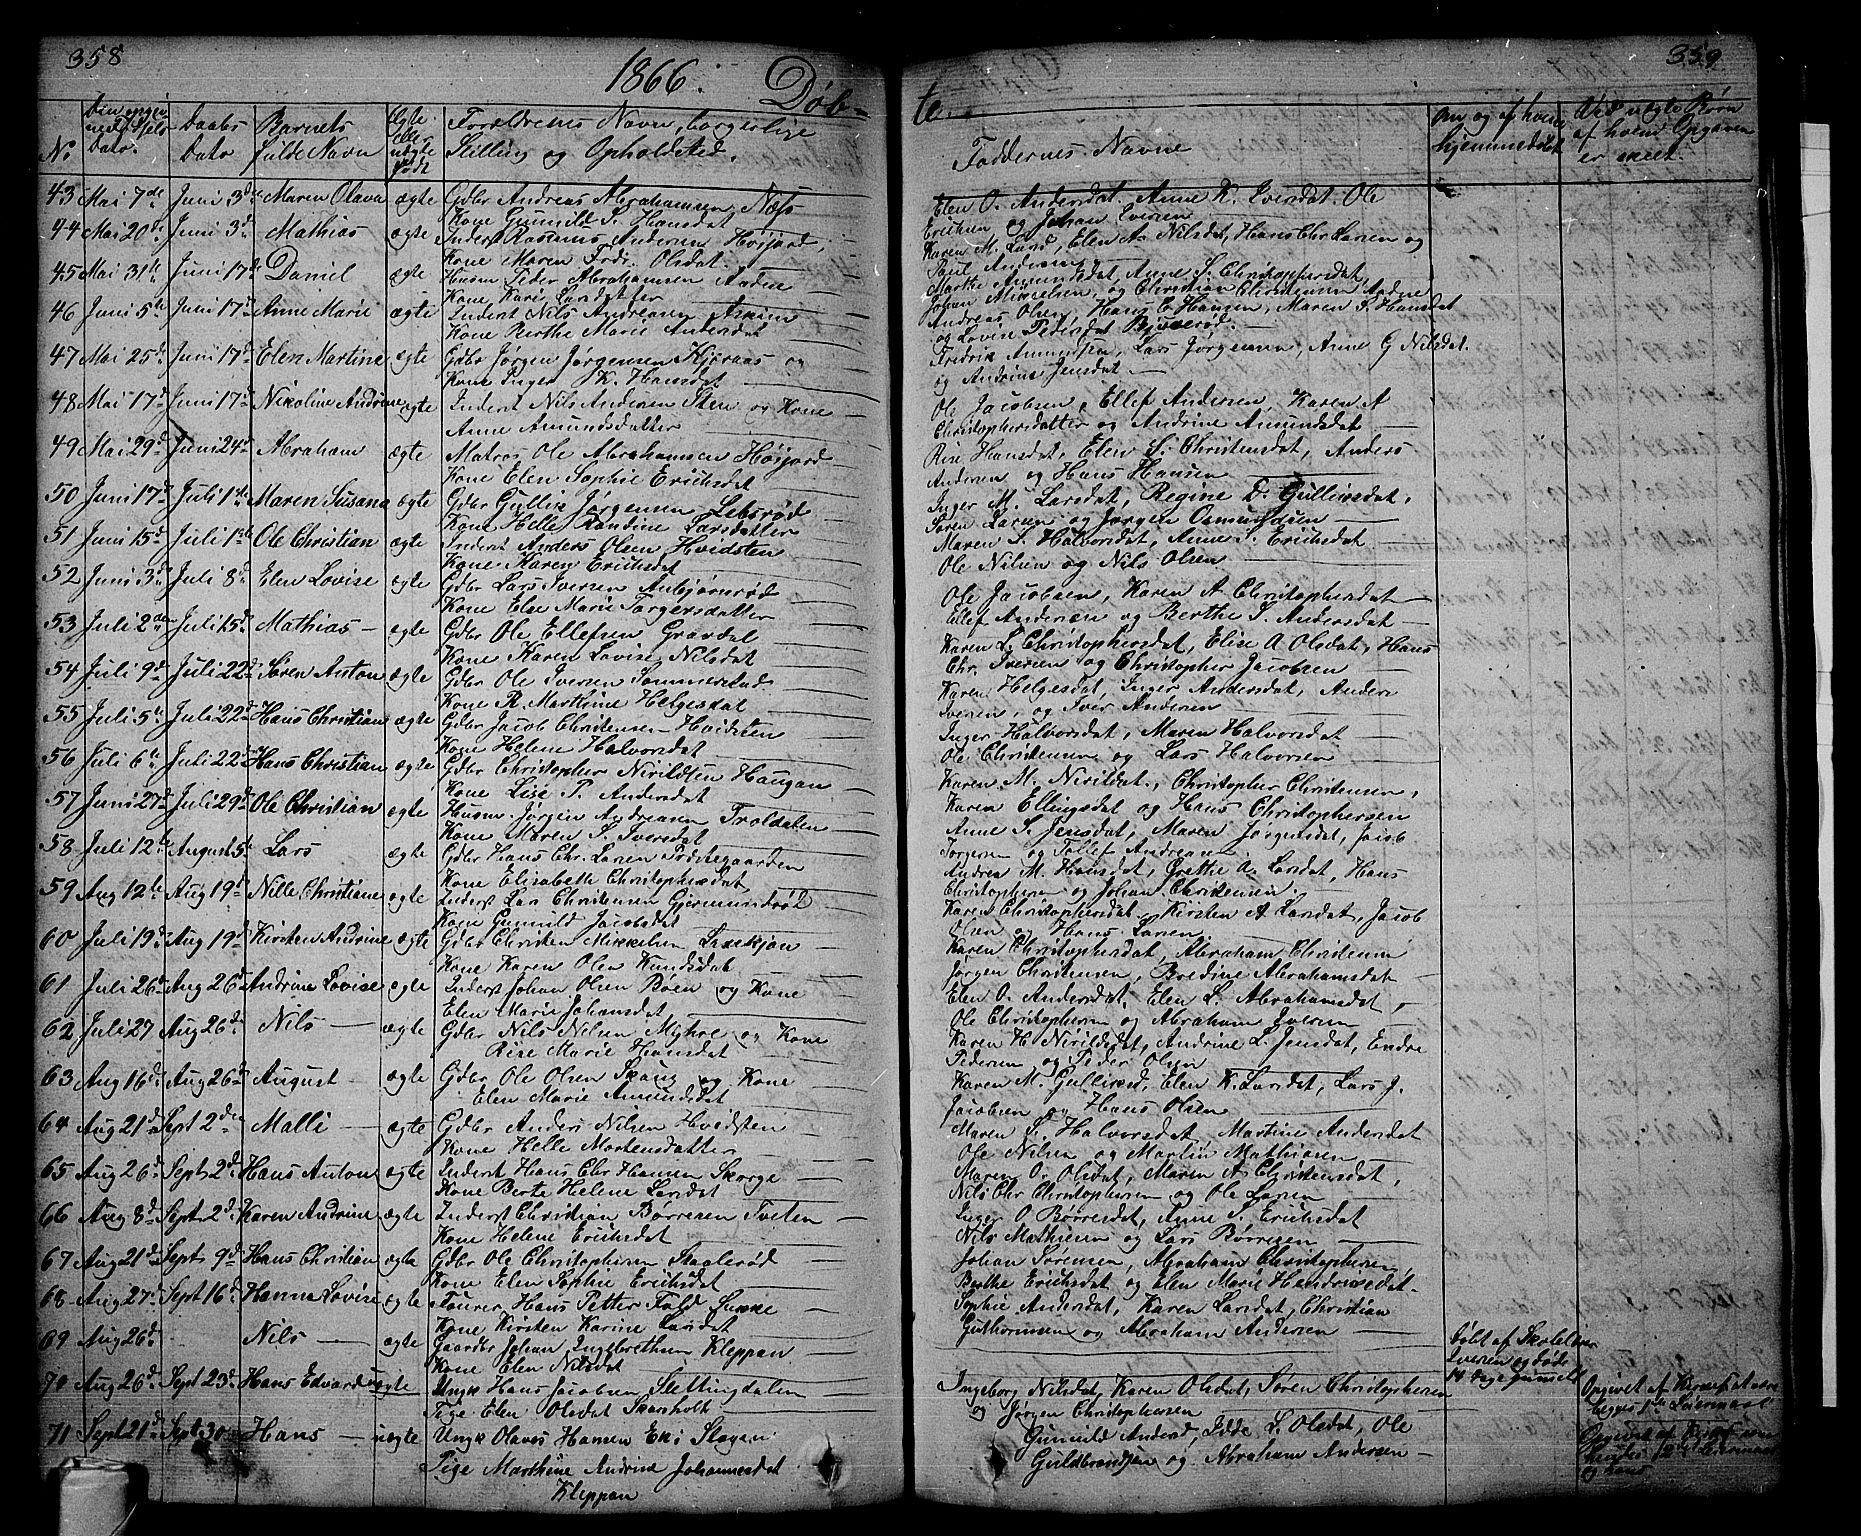 358
1866. Døb-
No
Daabs Dato
Barnets fulde Navn
Ægte eller uægte født
Forældrenes Navn, borgerlige Stilling og Opholdsted.
43 Mai 7de Juni 3die Maren Olava ægte Gdbr Andreas Abrahamsen Næss
Kone Gunnild S. Hansdat
44 Mai 20de Juni 3d Mathias ægte Inderst Rasmus Andersen Høijord,
Kone Maren Fred. Olsdat.
45 Mai 31te Juni 17d Daniel ægte Husm Peder Abrahamsen Aadne
Kone Kari Larsdatter
46 Juni 5te Juni 17d Anne Marie ægte Inderst Nils Andreasen Askim
Kone Berthe Marie Andersdat
47 Mai 25d Juni 17d Elen Martine ægte Gdbr Jørgen Jørgensen Kjeraas og
Kone Inger K. Hansdat
48 Mai 17d Juni 17d Nicoline Andrine ægte Inderst Nils Andersen Sten og Kone
Anne Amundsdatter
49 Mai 29d Juni 24d Abraham ægte Matros Ole Abrahamsen Høijord
Kone Elen Sophie Erichsdat
50 Juni 17d Juli 1ste Maren Susana ægte Gdbr Gullik Jørgensen Lebsrød
Kone Helle Randine Larsdatter
51 Juni 15d Juli 1ste Ole Christian ægte Inderst Anders Olsen Hvidsten
Kone Karen Erichsdat
52 Juni 3d Juli 8d Elen Lovise ægte Gdbr Lars Iversen Anbjørnrød
Kone Else Marie Torgersdatter
53 Juli 2den Juli 15d Mathias ægte Gdbr Ole Ellefsen Gravdal
Kone Karen Lovise Nilsdat
54 Juli 9d Juli 22d Søren Anton ægte Gdbr Ole Iversen Sommerstad
Kone R. Marthine Helgesdat
55 Juli 5te Juli 22d Hans Christian ægte Gdbr Jacob Christensen Hvidsten
Kone Helene Halvorsdat
56 Juli 6te Juli 22d Hans Christian ægte Gdbr Christopher Nirildsen Haugan
Kone Lise P. Andersdat
57 Juni 27d Juli 29d Ole Christian ægte Husm Jørgen Andreasen Troldalen
Kone Maren S. Iversdat
58 Juli 12te August 5te Lars ægte Gdbr Hans Chr. Larsen Præstegaarden
Kone Elisabeth Christophersdat
59 Aug 12te Aug 19d Nille Christiane ægte Inderst Lars Christensen Gjermundrød
Kone Gunnild Jacobsdat
60 Juli 19d Aug 19d Kirsten Andrine ægte Gdbr Christen Mikkelsen
Kone Karen Olen Knudsdat
61 Juli 26d Aug 26d Andrine Lovise ægte Inderst Johan Olsen Boen og Kone
Elen Marie Johansdat
62 Juli 27 Aug 26de Nils ægte Gdbr Nils Nilsen Myhre og Kone
Rise Marie Hansdat
63 Aug 16d Aug 26d August ægte Gdbr Ole Olsen Skaug og Kone
Elen Marie Amundsdat
64 Aug 21d Sept 2den Malli ægte Gdbr Anders Nilsen Hvidsten
Kone Helle Mortensdatter
65 Aug 26d Sept 2d Hans Anton ægte Inderst Hans Chr Hansen Skorge
Kone Berte Helene Larsdat
66 Aug 8d Sept 2d Karen Andrine ægte Inderst Christian Børresen Tveten
Kone Helene Erichsdat
67 Aug 21d Sept 9d Hans Christian ægte Gdbr Ole Christophersen Staalerød
Kone Elen Sophie Erichsdat
68 Aug 27d Sept 16d Hanna Lovise ægte Fourer Hans Petter Fold
Kone Kirsten Karine Larsdat
69 Aug 26d Nils ægte Gaardbr Johan Ingebrethsen Kleppan
Kone Elen Nilsdat
70 Aug 26d Sept 23d Hans Edvard uægte Ungk Hans Jacobsen Slettingdalen
Pige Elen Olsdat Skarsholt
71 Sept 21d Sept 30 Hans uægte Ungk Olaves Hansen Eki Slagen
Pige Marthine Andrine Johannesdat
Kleppan
359
te.
Faddernes Navne
Om og af hvem hjemmedøbt
Ved uægte Børn af hvem Opgaven er skeet.
Elen O. Andersdat. Anne K. Iversdat. Ole
Erichsen og Johan Iversen
Karen M. Larsd, Elen A. Nilsdat, Hans Chr Larsen og
Paul Andersen
Marthe Amundsdat, Anne S. Christophersdat,
Johan Mikkelsen, og Christian Christensen Aadne
Andreas Olsen, Hans E Hansen, Maren S. Hansdat
og Lovise Pedersdat Bjuerød.
Fredrik Amundsen, Lars Jørgensen, Anne G Nilsdat.
og Andrine Jensdat
Ole Jacobsen, Ellef Andersen, Karen A
Christophersdatter og Andrine Amundsdat
Rise Hansdat, Elen S. Christensdat, Anders
Andersen og Hans Hansen
Inger M. Larsdat, Regine D. Gulliksdat,
Søren Larsen og Jørgen Osmundsen
Maren S. Halvorsdat, Anne S. Erichsdat
Ole Nilsen og Nils Olsen
Ole Jacobsen, Karen A. Christophersdat
Ellef Andersen og Berthe S. Andersdat
Karen L. Christophersdat, Elise A Olsdat, Hans
Chr. Iversen og Christopher Jacobsen
Karen Helgesdat, Inger Andersdat, Anders
Iversen, og Iver Andersen
Inger Halvorsdat, Maren Halvorsdat
Ole Christensen og Lars Halvorsen
Karen M. Nirildat, Christopher Christensen,
Karen Ellingsdat og Hans Christophersen
Anne S. Jensdat, Maren Jørgensdat, Jacob
Jørgensen og Tollef Andreasen
Andrea M. Hansdat, Grethe A. Larsdat, Hans
Christophersen og Johan Christensen.
Karen Christophersdat. Kirsten A Larsdat, Jacob
Olsen og Hans Larsen
Karen Christophersdat, Abraham Christensen
Jørgen Christensen, Bredine Abrahamsdat
Elen O. Andersdat, Elen L. Abrahamsdat,
Ole Christophersen og Abraham Iversen
Karen H Nirildsdat, Andrine L. Jensdat, Endre
Pedersen og Peder Olsen
Karen M. Gulliksd, Elen K. Larsdat, Lars J.
Jacobsen og Hans Olsen
Maren S. Halvorsdat Martine Andersdat
Ole Nilsen og Martin Mathiasen
Maren O. Olsdat, Maren A. Christensdat,
Nils Chr Christophersen og Ole Larsen
Inger O. Børresdat, Anne S. Erichsdat
Nils Mathiesen og Lars Børresen
Johan Sørensen, Abraham Christophersen,
Berthe Erichsdat, og Elen Marie Handricsdat.
Sophie Andersdat, Karen Larsdat, Christian
Guthormsen og Abraham Andersen
døbt af Skolelærer
Iversen og døde
14 Dage gammelt
Ingeborg Nilsdat, Karen Olsdat, Søren Christophersen
og Jørgen Christophersen
Opgivet af
begges 1ste Leiermaal
Gunnild Andersd, Olsdat, Ole
Guldbrandsen og Abraham Andersen
Opgivet af